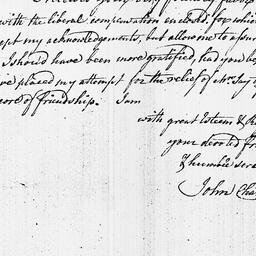 with the liberal compensation enclosed. for which
ept my acknowledgements, but allow me to assure
I should have been more gratified, had you
ve placed my attempt for the relief of Mrs Jay
score of friendship. I am
with great Esteem &
your devoted
& humble
John Cha